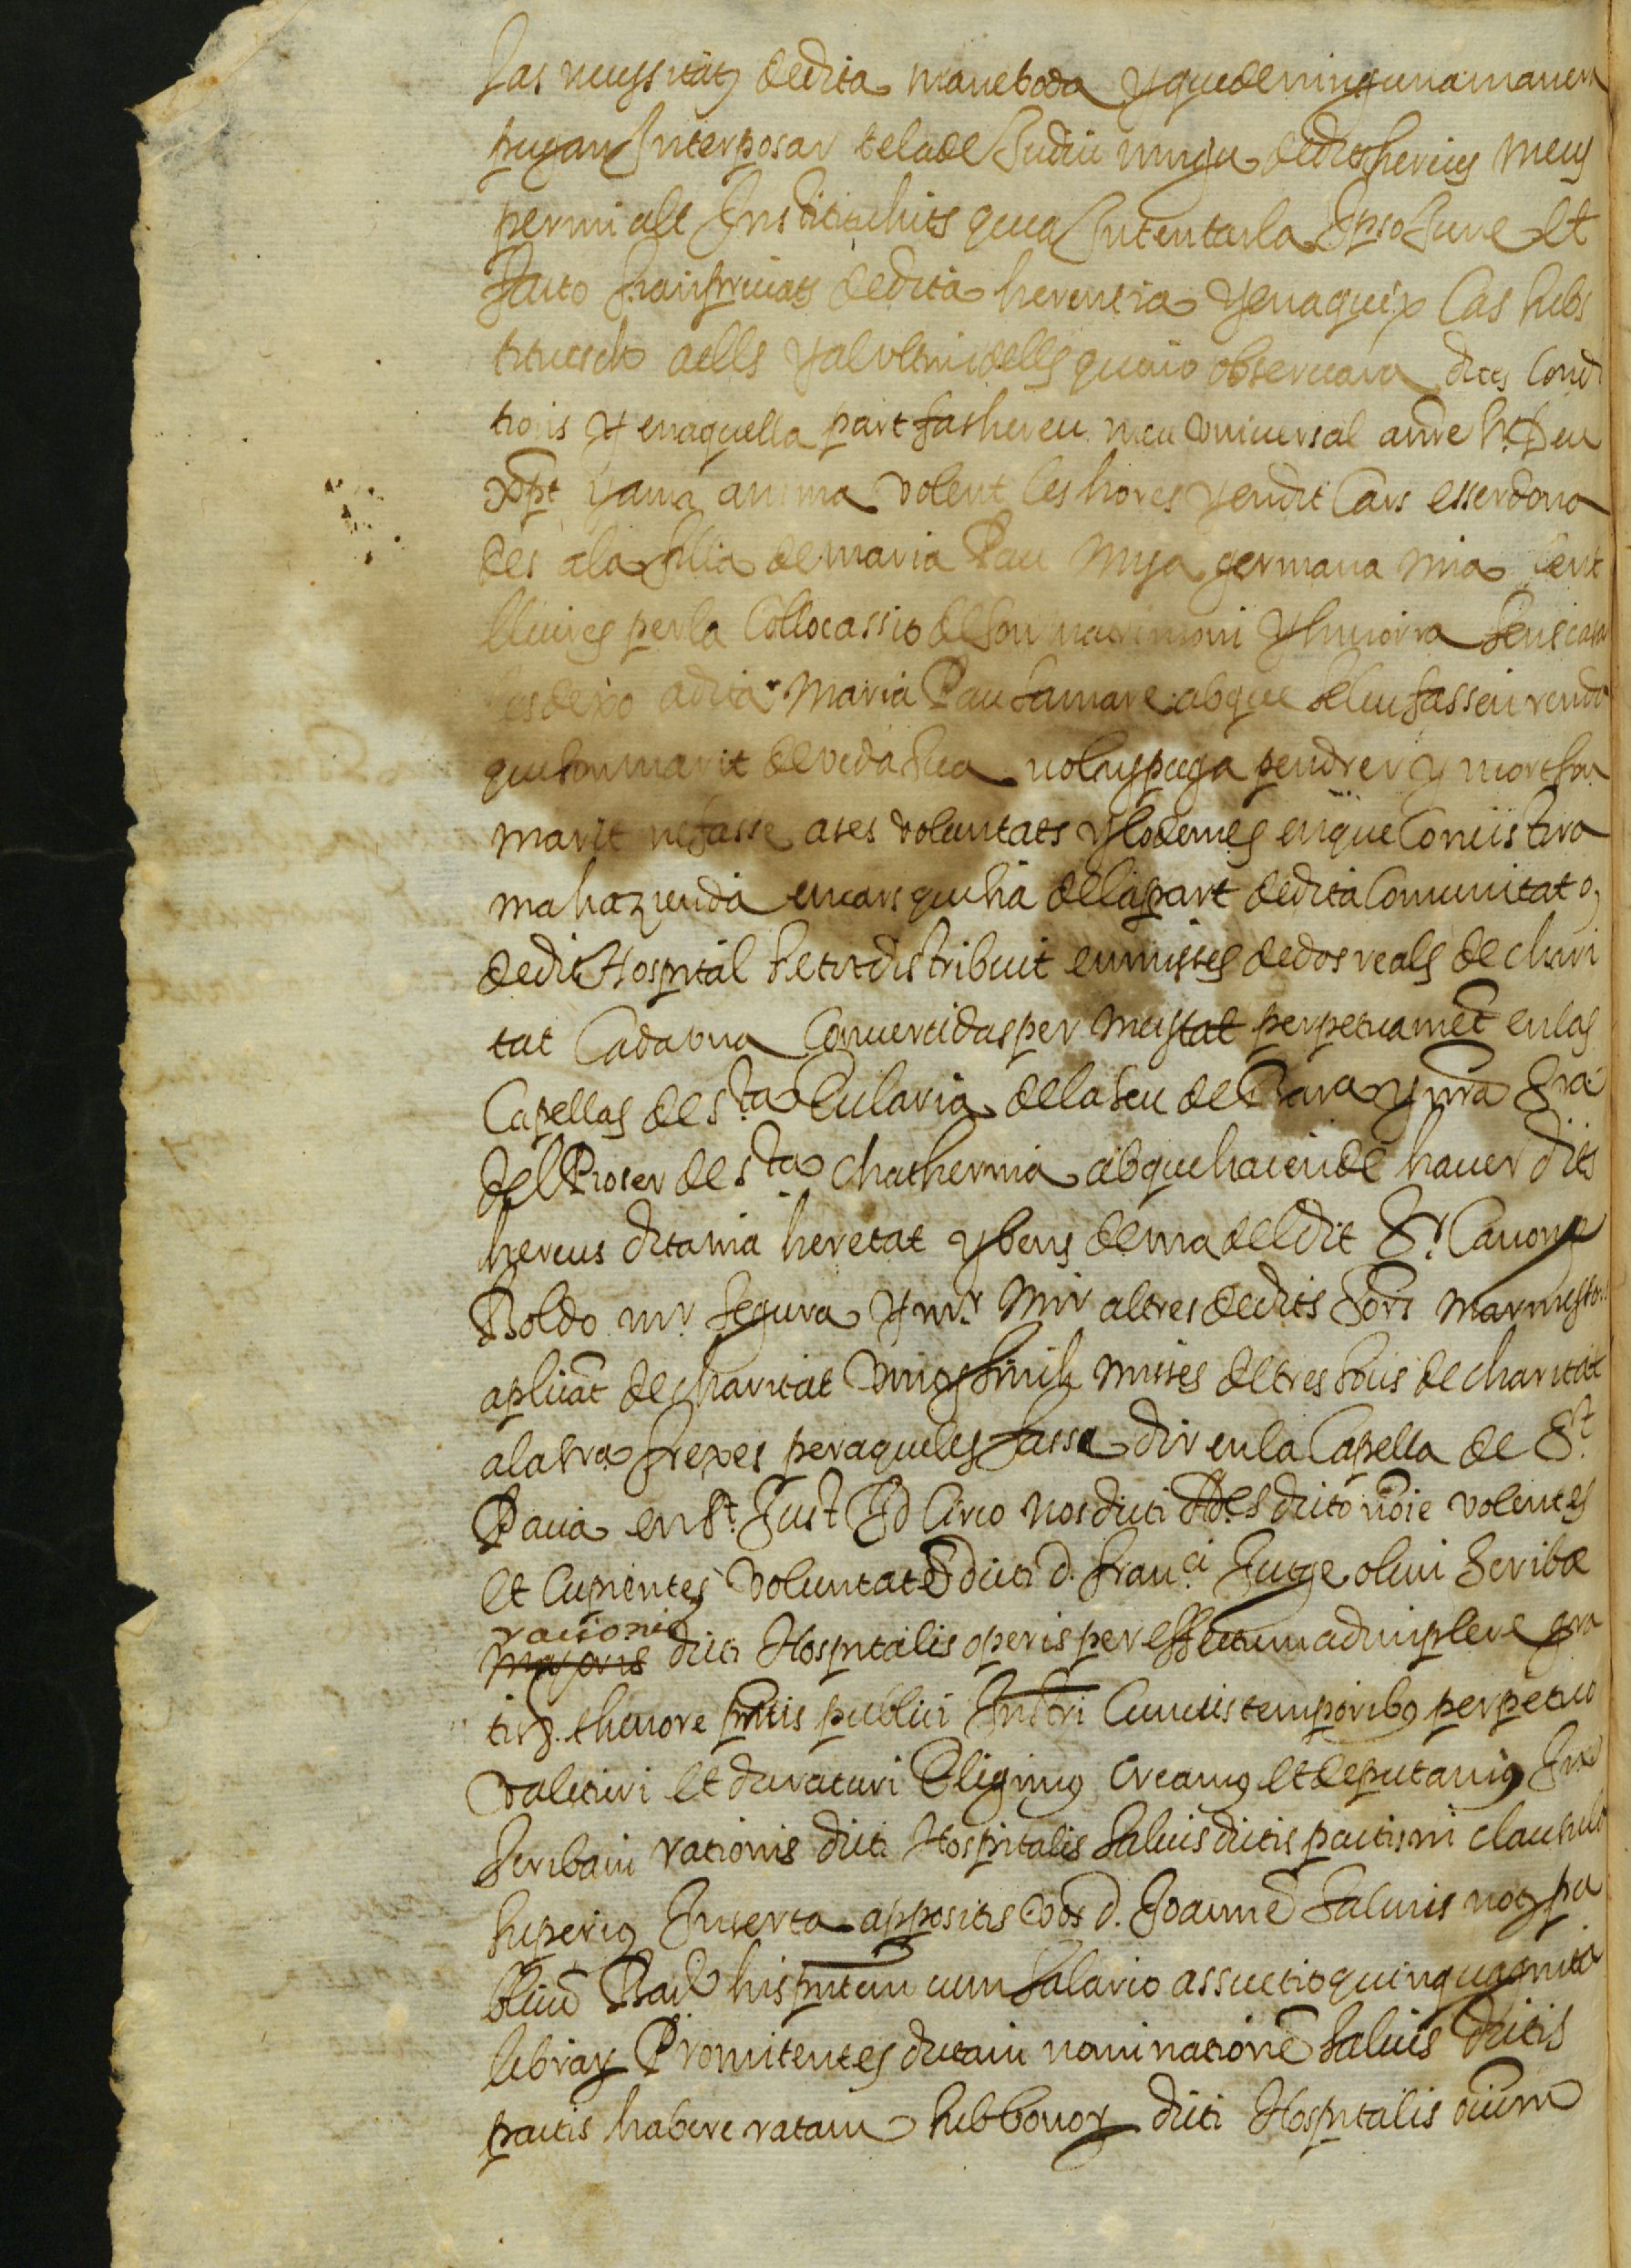 las necessitats de dita maneboda y que de ninguna manera
pugan Interposar tela de Judici ningu de dits hereus meus
per mi alt Instituhits que a Intentarla Ipso Jure et
facto sian privats de dita herencia y en aquix Cas subs
tituesch a ells y al ultim de ells qui no observara dites Condi
tions y en aquella part fas hereu meu universal a nre Sr. Deu
y a ma anima volent les hores y en dit Cars esser dona
des a la filla de maria Pau germana mia cent
lliures per la Collocassio de son matrimoni y si morra sens casar
les dexo a dita Maria Pau sa mare ab que se leu fassen renda
que son marit de vida sua no las puga pendrer y mort son
marit ne fasse a ses voluntats y lo demes en que Consistira
ma hazienda en cars que hi a de la part de dita Comunitat o
de dit Hospital se tot distribuit en misses de dos reals de chari
tat Cada una Convertidas per meytat perpetuament en las
Capellas de Sta Eularia de la Seu de Bara y nra Sra
del Roser de Sta Chatherina ab que hajen de haver dits
hereus dita mia heretat y bens de ma del dit Sr. Canonge
Boldo mr. Segura y mr. Mir altres de dits Sors marmessors
aplicat de charitat Vint y Sinch misses de tres sous de charitat
a la sra frexes per a que les fassa dir en la Capella de St.
Pacia en St. Just Id Circo nos dicti Ads. dicto noie volentes
et Cupientes voluntate dicti d. Franci. Jutge olim Scribæ
rationis
majoris dicti Hospitalis operis per effectum adimplere gra
tis z. thenore pntis publici Instri Cunctis temporibus perpetuo
valituri et duraturi Eligimus Creamus et deputamus In
Scribam rationis dicti Hospitalis Salvis dictis pactis in clausula
superius Inserta appositis Vos d. Joanne Salines not. pu
blicu Bar. his pntem cum Salario assueto quinquaginta
librar. Promitentes dictam nominatione Salvis dictis
pactis habere ratam sub bonor. dicti Hospitalis oium